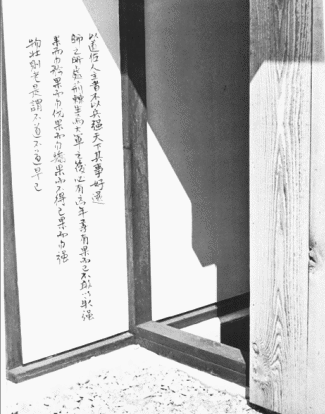 以道佐人主者不以兵强天下其事好還
師之所處荊棘生焉大軍之後必有凶年善有果而已不敢以取强
果而勿矜果而勿伐果而勿驕果而不得已果而勿强
物壯則老是謂不道不道早已